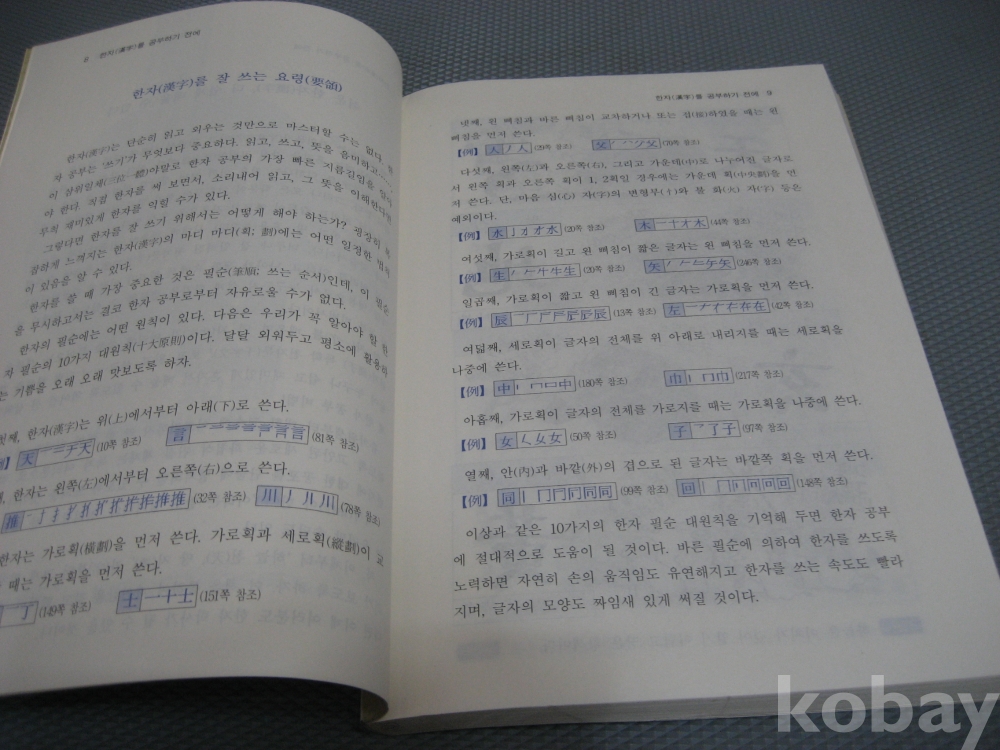 8 한자(漢字)를 공부하기 전에
한자(漢字)를 잘 쓰는 요령(要領)
한자(漢字)는 단순히 읽고 외우는 것만으로 마스터할 수는 없다.
자 공부는 '쓰기'가 무엇보다 중요하다. 읽고, 쓰고, 뜻을 음미하고
이 삼위일체(三位一體)야말로 한자 공부의 가장 빠른 지름길임을
야 한다. 직접 한자를 써 보면서, 소리내어 읽고, 그 뜻을 이해한다면
무척 재미있게 한자를 익힐 수가 있다.
그렇다면 한자를 잘 쓰기 위해서는 어떻게 해야 하는가? 굉장히 복
잡하게 느껴지는 한자(漢字)의 마디 마디(획; 劃)에는 어떤 일정한
이 있음을 알 수 있다.
한자를 쓸 때 가장 중요한 것은 필순(筆順; 쓰는 순서)인데, 이 필순
을 무시하고서는 결코 한자 공부로부터 자유로울 수가 없다.
한자의 필순에는 어떤 원칙이 있다. 다음은 우리가 꼭 알아야 할 한
자 필순의 10가지 대원칙(十大原則)이다. 달달 외워두고 평소에 활용하
는 기쁨을 오래 오래 맛보도록 하자.
첫째, 한자(漢字)는 위(上)에서부터 아래(下)로 쓴다.
天 一 二 チ 天 (10쪽 참조) 言 (81쪽 참조)
한자는 왼쪽(左)에서부터 오른쪽(右)으로 쓴다.
推 (32쪽 참조) 川 丿 川 川 (78쪽 참조)
한자는 가로획(橫劃)을 먼저 쓴다. 가로획과 세로획(縱劃)이 교
때는 가로획을 먼저 쓴다.
一 丁 (149쪽 참조) 士 一 十 士 (151쪽 참조)
한자(漢字)를 공부하기 전에 9
넷째, 왼 삐침과 바른 삐침이 교차하거나 또는 접(接)하였을 때는 왼
삐침을 먼저 쓴다.
【例】 人 丿 人 (20쪽 참조) 父 父 (70쪽 참조)
다섯째, 왼쪽(左)과 오른쪽(右), 그리고 가운데(中)로 나누어진 글자로
서 왼쪽 획과 오른쪽 획이 1, 2획일 경우에는 가운데 획(中央劃)을 먼
저 쓴다. 단, 마음 심(心) 자(字)의 변형부(忄)와 불 화(火) 자(字) 등은
예외이다.
【例】 水 水 (20쪽 참조) 木 一 十 才 木 (44쪽 참조)
여섯째, 가로획이 길고 왼 삐침이 짧은 글자는 왼 삐침을 먼저 쓴다.
【例】 生 生 (20쪽 참조) 矢 矢 (246쪽 참조)
일곱째, 가로획이 짧고 왼 삐침이 긴 글자는 가로획을 먼저 쓴다.
【例】 辰 辰 (13쪽 참조) 左 存 在 (42쪽 참조)
여덟째, 세로획이 글자의 전체를 위 아래로 내리지를 때는 세로획을
나중에 쓴다.
【例】 中 丨 口 口 中 (180쪽 참조) 巾 丨 冂 巾 (217쪽 참조)
아홉째, 가로획이 글자의 전체를 가로지를 때는 가로획을 나중에 쓴다.
【例】 女 女 女 (50쪽 참조) 子 了 子 (97쪽 참조)
열째, 안(內)과 바깥(外)의 겹으로 된 글자는 바깥쪽 획을 먼저 쓴다.
【例】 同 丨 冂 冂 同 同 同 (99쪽 참조) 回 丨 冂 回 回 回 (148쪽 참조)
이상과 같은 10가지의 한자 필순 대원칙을 기억해 두면 한자 공부
에 절대적으로 도움이 될 것이다. 바른 필순에 의하여 한자를 쓰도록
노력하면 자연히 손의 움직임도 유연해지고 한자를 쓰는 속도도 빨라
지며, 글자의 모양도 짜임새 있게 써질 것이다.
kobay